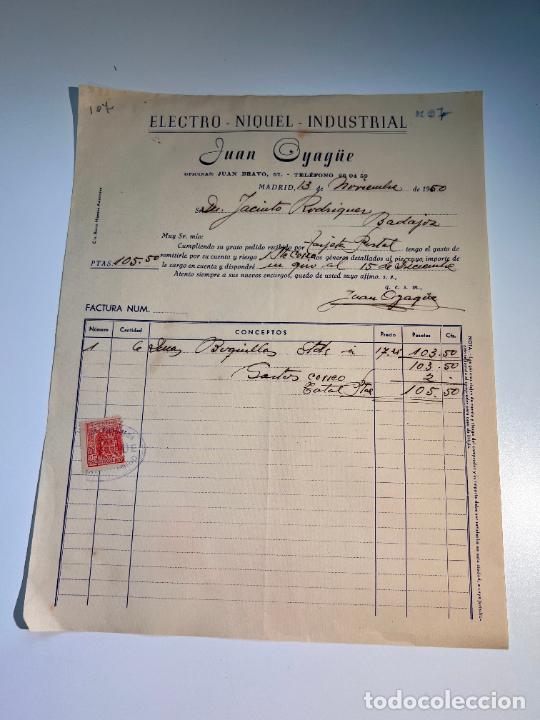 107
ELECTRO - NIQUEL - INDUSTRIAL
Juan Oyagüe
OFICINAS: JUAN BRAVO, 67. - TELÉFONO 26 04 59
MADRID, 13 de Noviembre de 1950
Sr. Dn. Jacinto Rodriguez
Badajoz
Muy Sr. mío:
Cumpliendo su grato pedido recibido por Tarjeta Postal tengo el gusto de
remitirle por su cuenta y riesgo los géneros detallados al pie; cuyo importe de
PTAS. 105.50 le cargo en cuenta y dispondré en giro al 15 de Diciembre
Atento siempre a sus nuevos encargos, quedo de usted suyo afmo. s. s.,
q. e. s. m.,
Juan Oyagüe
FACTURA NUM.
Número Cantidad CONCEPTOS Precio Pesetas Cts.
1 6 Boquillas 17.25 103.50
103.50
Gastos correo 2
Total Ptas 105.50
todocoleccion.net